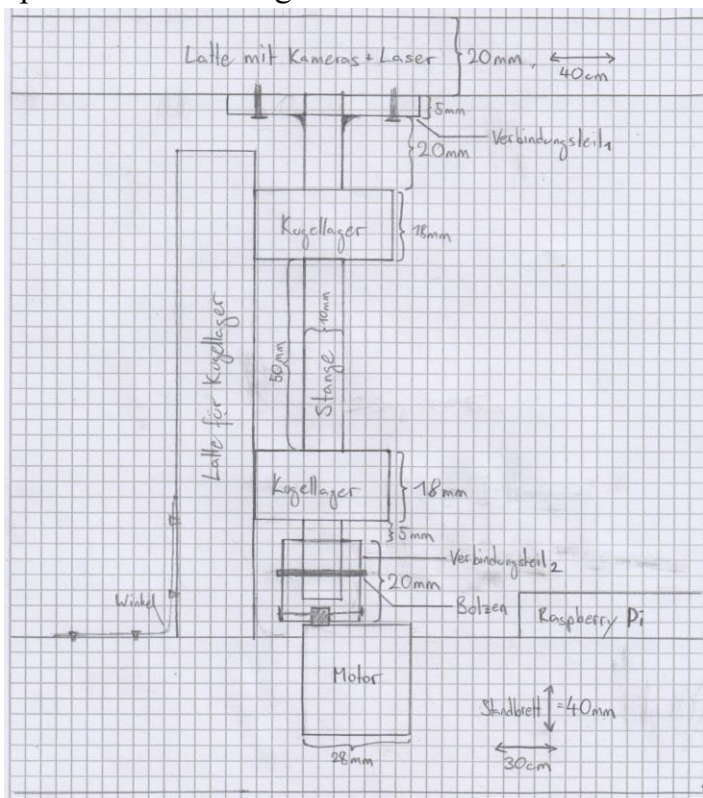 Latte mit Kameras + Laser
20mm,
40cm
5mm
Verbindungsteil1
20mm
Kugellager
18mm
10mm
50mm
Stange
Latte für Kugellager
Kugellager
18mm
5mm
Verbindungsteil2
20mm
Bolzen
Winkel
Raspberry Pi
Motor
Standbrett = 40mm
28mm
30cm